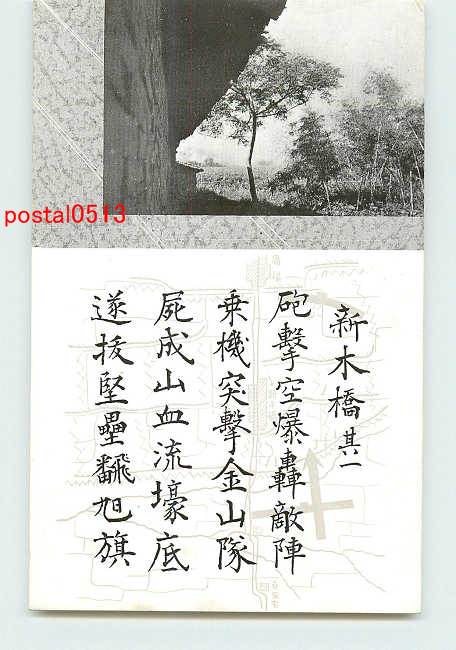 postal0513
新木橋 其二
砲撃空爆轟敵陣
乗機突撃金山隊
屍成山血流壕底
遂抜堅壘飜旭旗